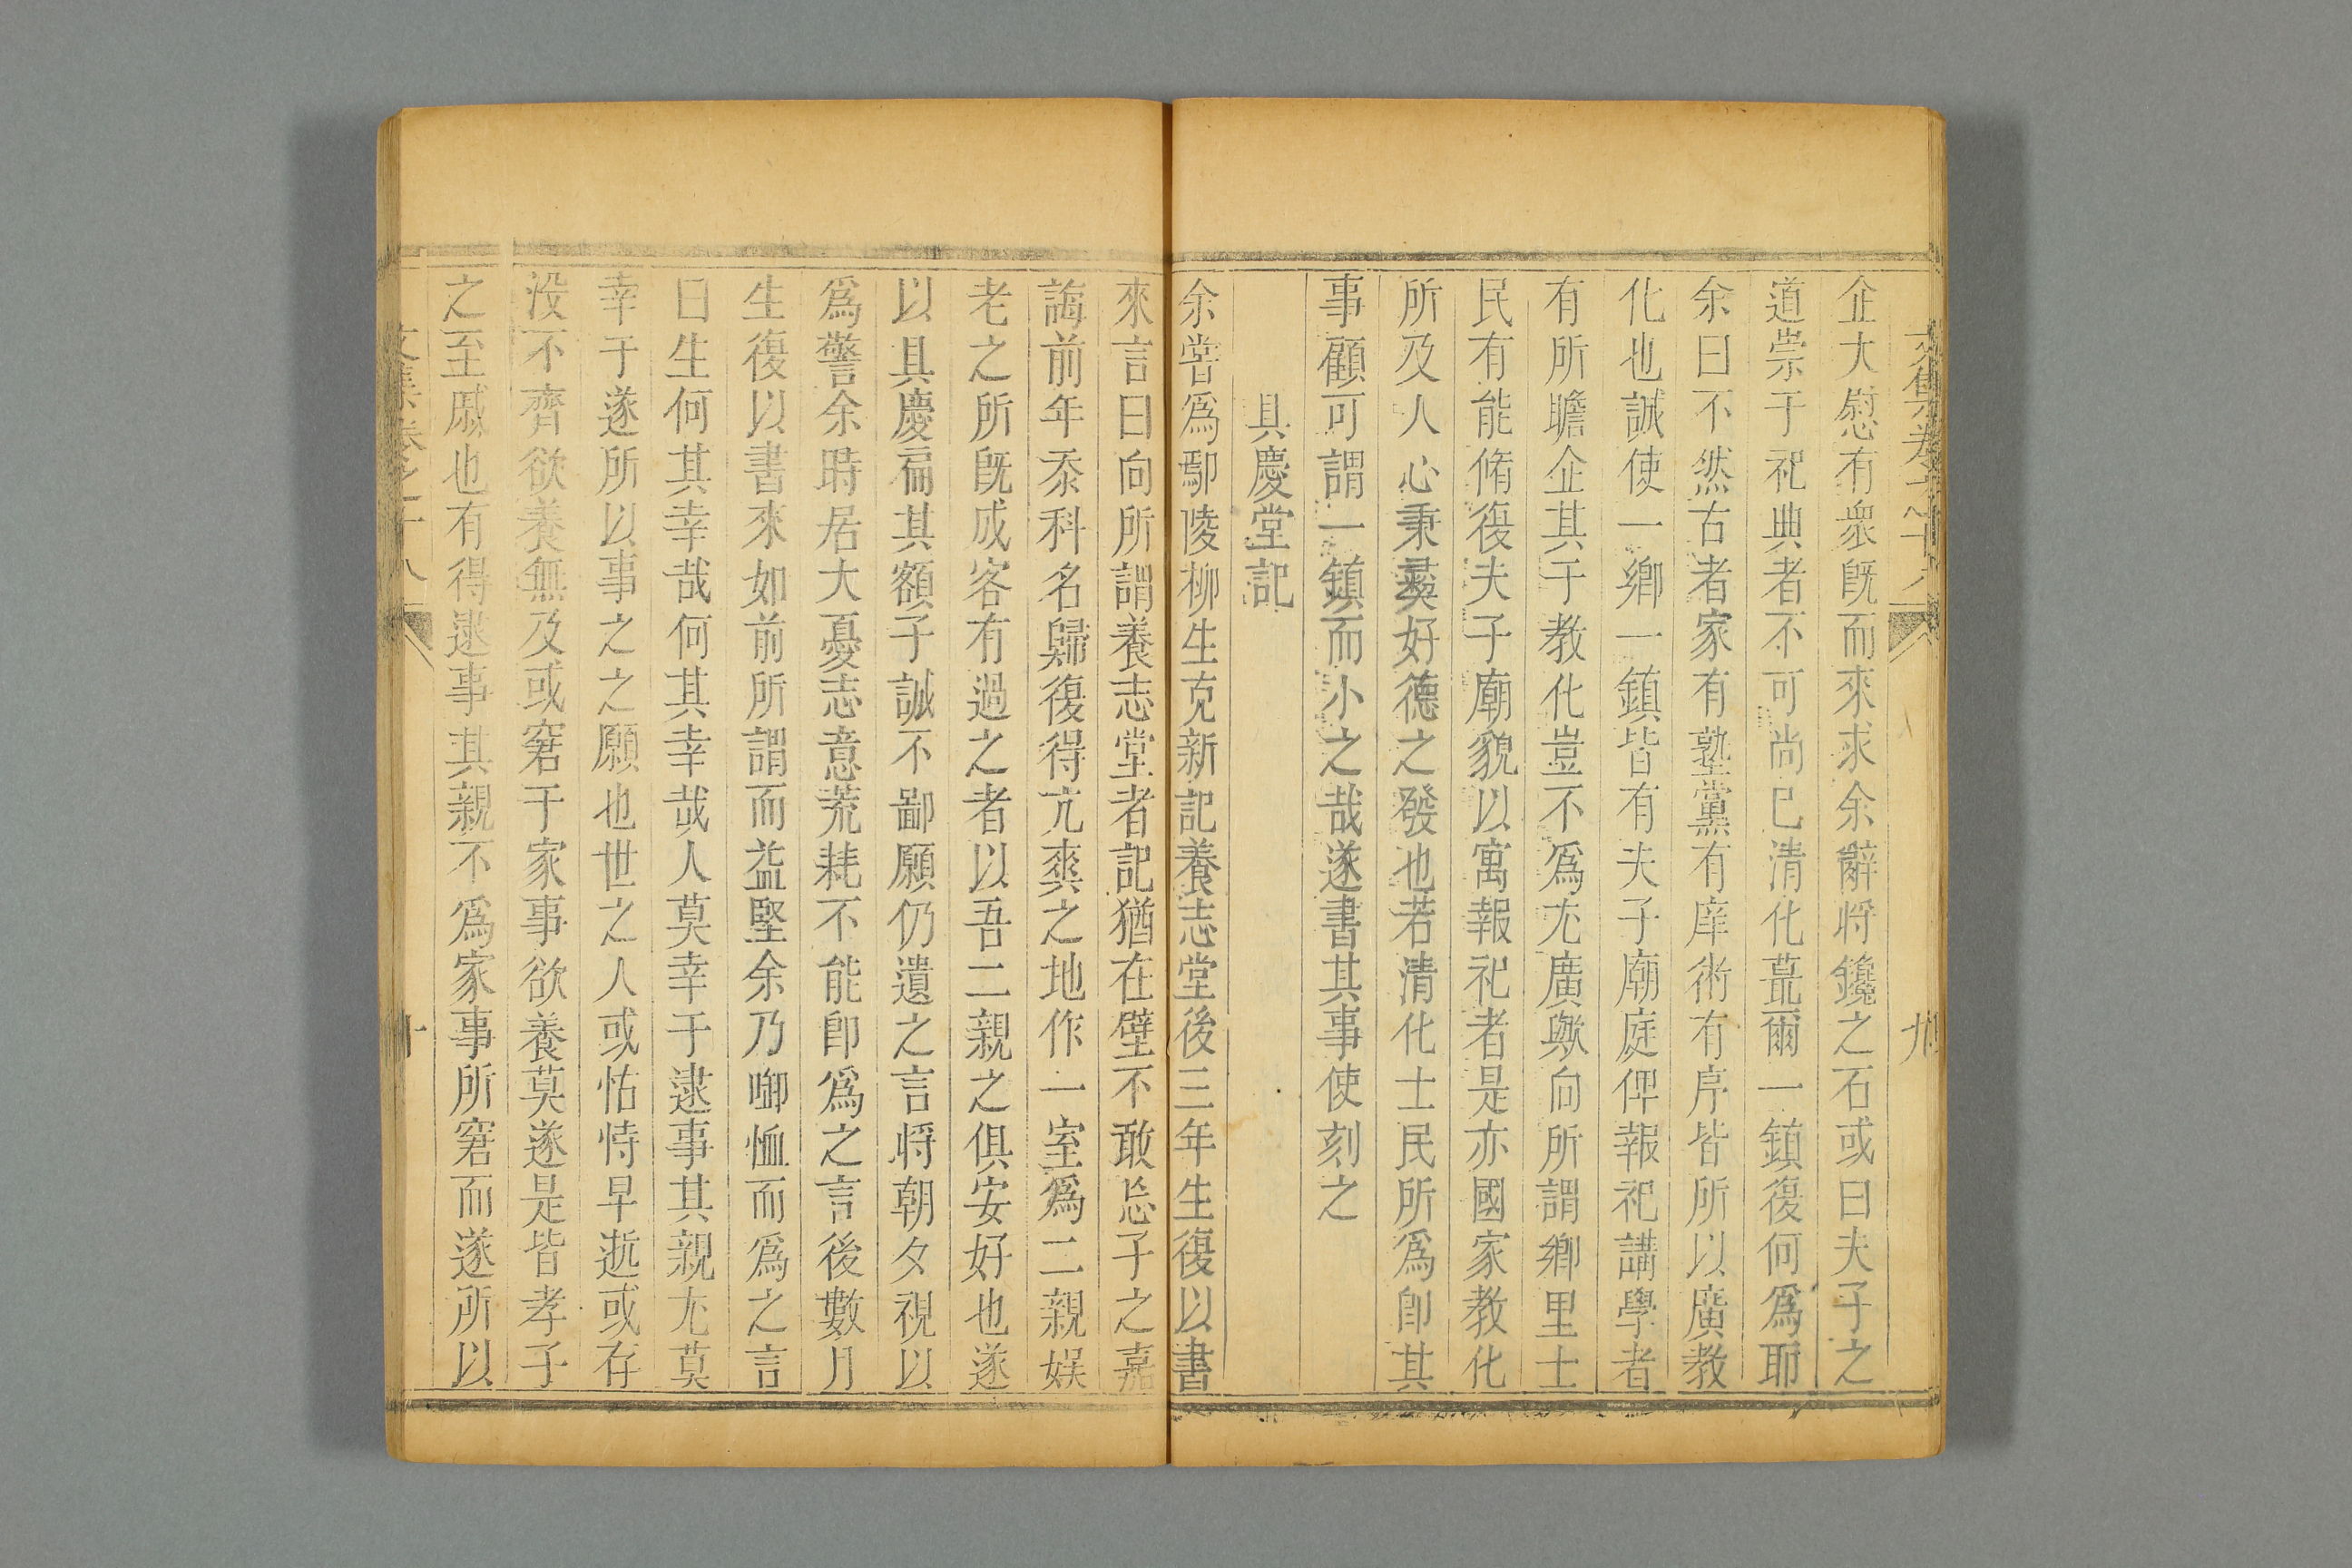 文集卷之十八
九
企大慰有衆旣而來求余辭將鑱之石或曰夫子之
道崇于祀典者不可尚已清化蕞爾一鎮復何爲耶
余曰不然古者家有塾黨有庠術有序皆所以廣教
化也誠使一鄉一鎮皆有夫子廟庭俾報祀講學者
有所瞻企其于教化豈不爲尤廣歟向所謂鄉里士
民有能脩復夫子廟貌以寓報祀者是亦國家教化
所及人心秉彝好德之發也若清化士民所爲卽其
事顧可謂一鎮而小之哉遂書其事使刻之
具慶堂記
余嘗爲鄢陵柳生克新記養志堂後三年生復以書
來言曰向所謂養志堂者記猶在壁不敢忘子之嘉
誨前年忝科名歸復得亢爽之地作一室爲二親娱
老之所旣成客有過之者以吾二親之俱安好也遂
以具慶扁其額子誠不鄙願仍遺之言將朝夕視以
爲警余時居大憂志意荒耗不能卽爲之言後數月
生復以書來如前所謂而益堅余乃啣恤而爲之言
曰生何其幸哉何其幸哉人莫幸于逮事其親尤莫
幸于遂所以事之之願也世之人或怙恃早逝或存
没不齊欲養無及或窘于家事欲養莫遂是皆孝子
之至戚也有得逮事其親不爲家事所窘而遂所以
文集卷之十八
十